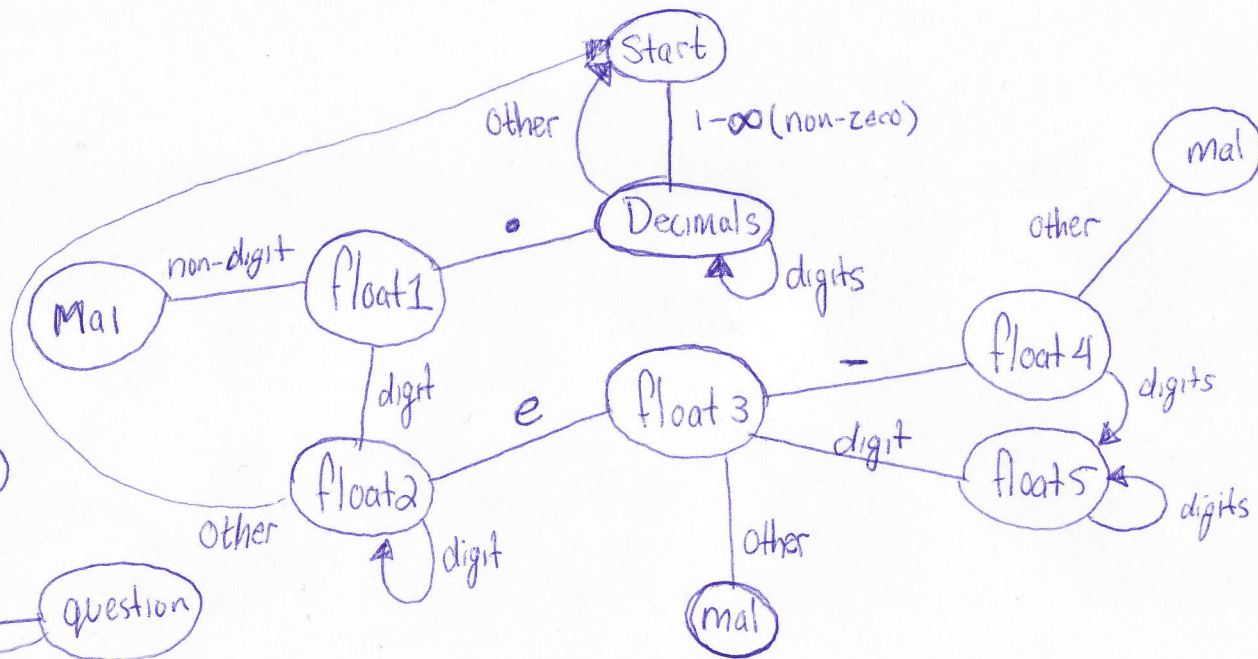 Start
Other
1-∞(non-zero)
mal
Decimals
.
Other
non-digit
digits
float1
Mal
float4
-
digit
e
float3
digits
digit
float2
float5
digits
Other
digit
Other
question
mal